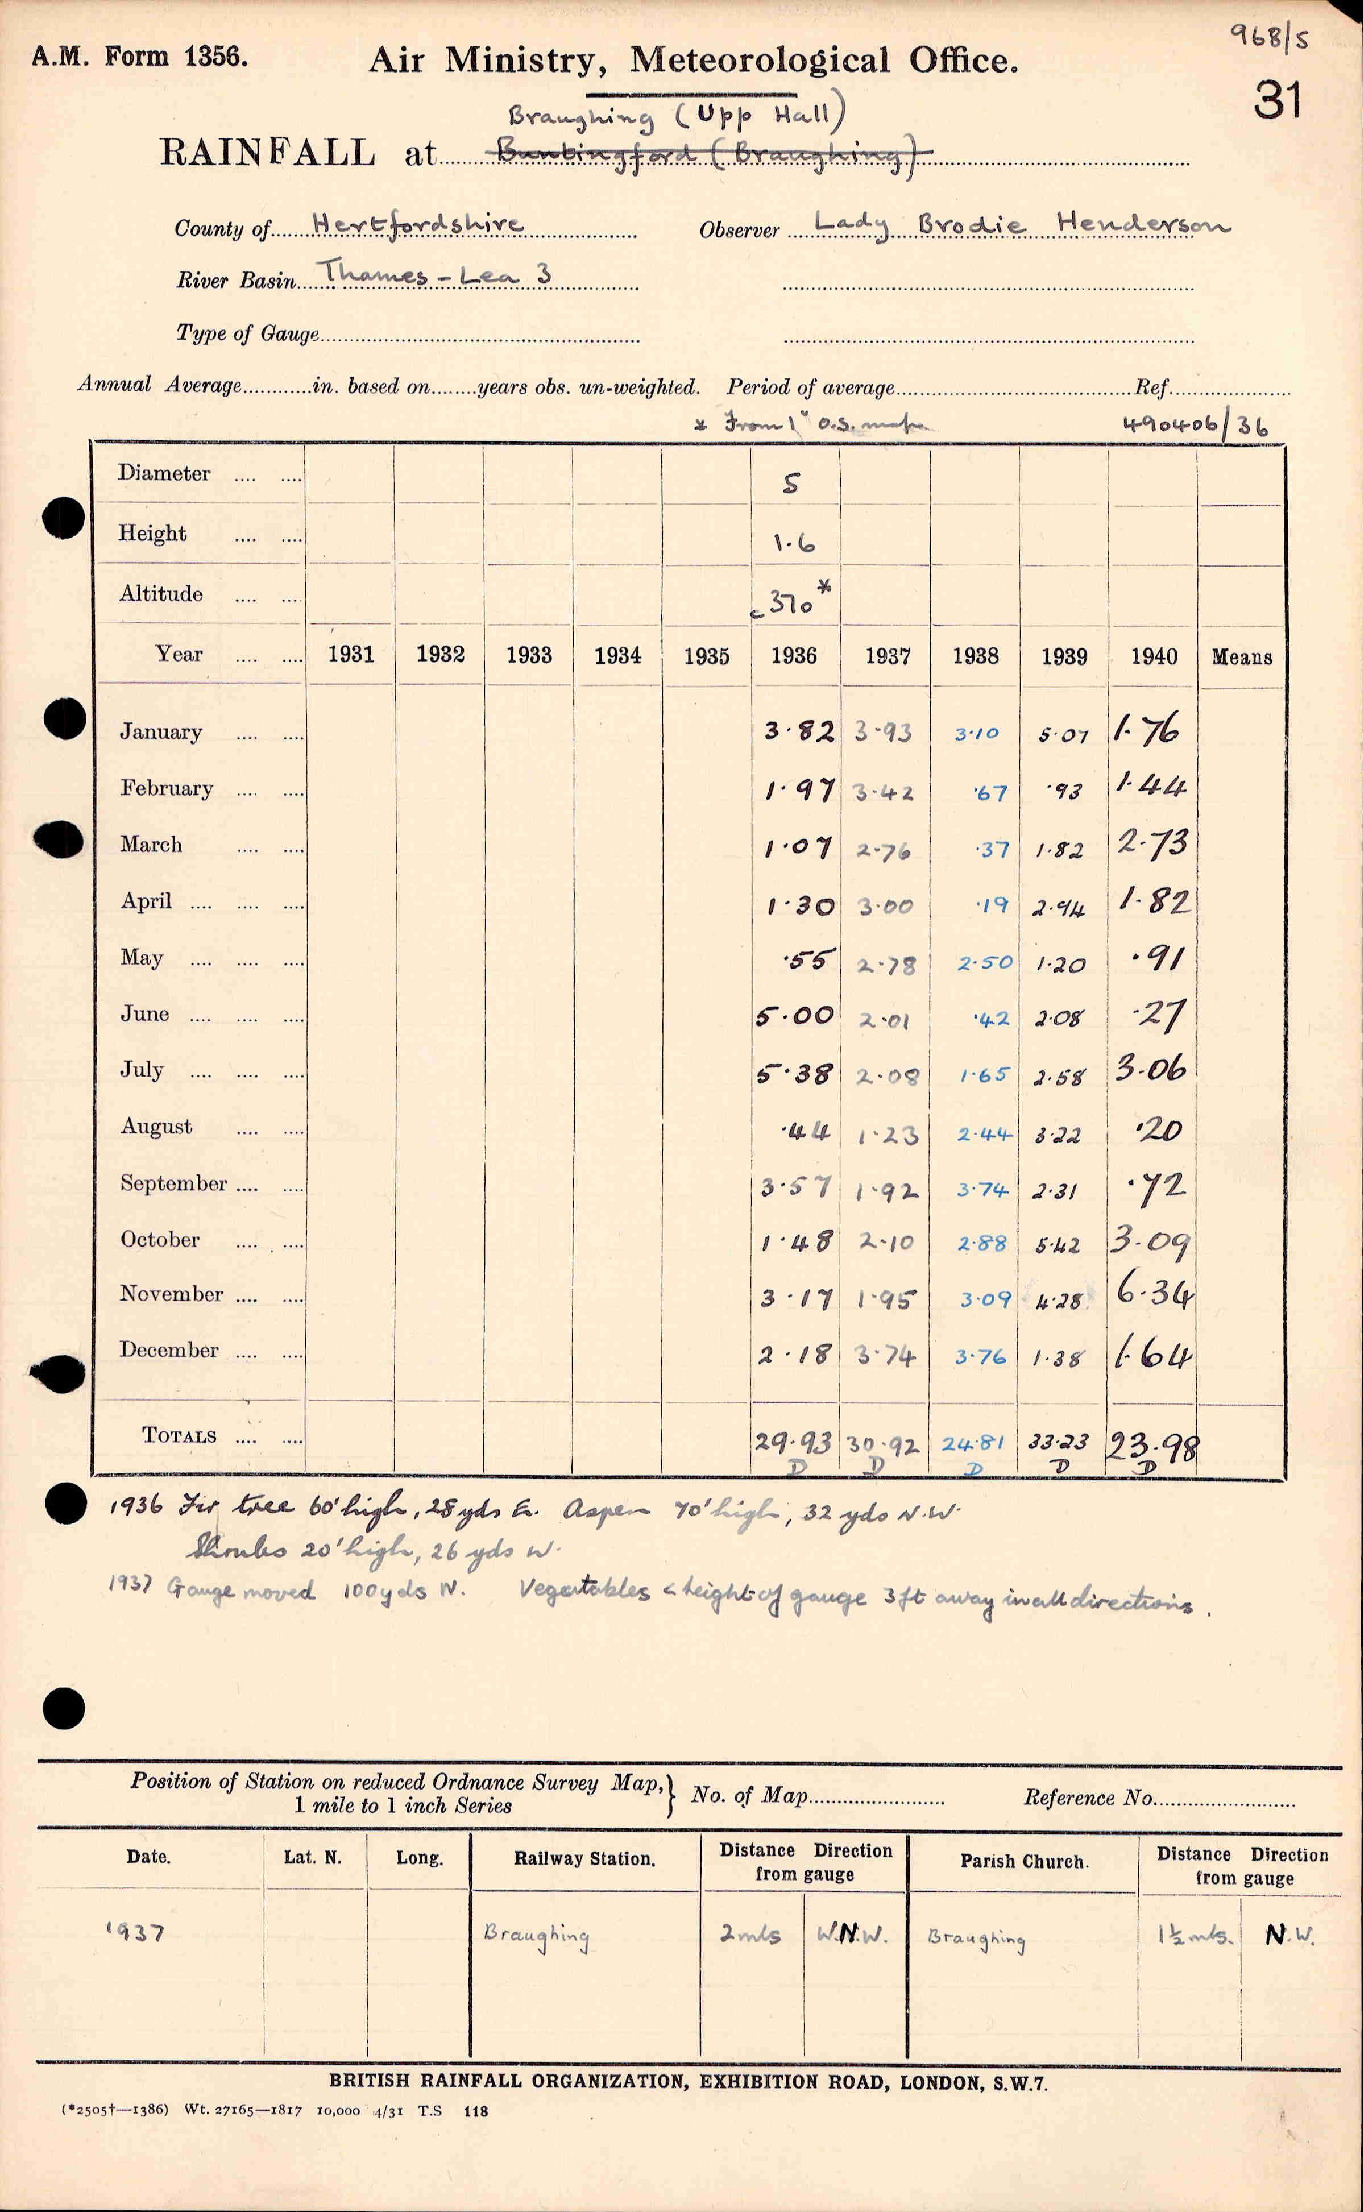 968/5
A.M. Form 1356.
Air Ministry, Meteorological Office.
31
Braughing (Upp Hall)
RAINFALL at Buntingford (Braughing)
County of Hertfordshire Observer Lady Brodie Henderson
River Basin Thames - Lea 3
Type of Gauge
Annual Average in. based on years obs. un-weighted. Period of average Ref.
* From 1" O.S. map 490406/36
Diameter 5
Height 1.6
Altitude c370*
Year 1931 1932 1933 1934 1935 1936 1937 1938 1939 1940 Means
January 3.82 3.93 3.10 5.07 1.76
February 1.97 3.42 .67 .93 1.44
March 1.07 2.76 .37 1.82 2.73
April 1.30 3.00 .19 2.94 1.82
May .55 2.78 2.50 1.20 .91
June 5.00 2.01 .42 2.08 .27
July 5.38 2.08 1.65 2.58 3.06
August .44 1.23 2.44 3.22 .20
September 3.57 1.92 3.74 2.31 .72
October 1.48 2.10 2.88 5.42 3.09
November 3.17 1.95 3.09 4.28 6.34
December 2.18 3.74 3.76 1.38 1.64
TOTALS 29.93 30.92 24.81 33.23 23.98
D D D D D
1936 Fir tree 60' high, 28 yds E. Aspen 70' high, 32 yds N.W.
Shrubs 20' high, 26 yds W.
1937 Gauge moved 100yds N. Vegetables < height of gauge 3ft away in all directions.
Position of Station on reduced Ordnance Survey Map,} No. of Map Reference No.
1 mile to 1 inch Series
Date. Lat. N. Long. Railway Station. Distance Direction from gauge Parish Church. Distance Direction from gauge
1937 Braughing 2 mls W.N.W. Braughing 1½ mls. N.W.
BRITISH RAINFALL ORGANIZATION, EXHIBITION ROAD, LONDON, S.W.7.
(*2505†—1386) Wt. 27165—1817 10,000 4/31 T.S 118